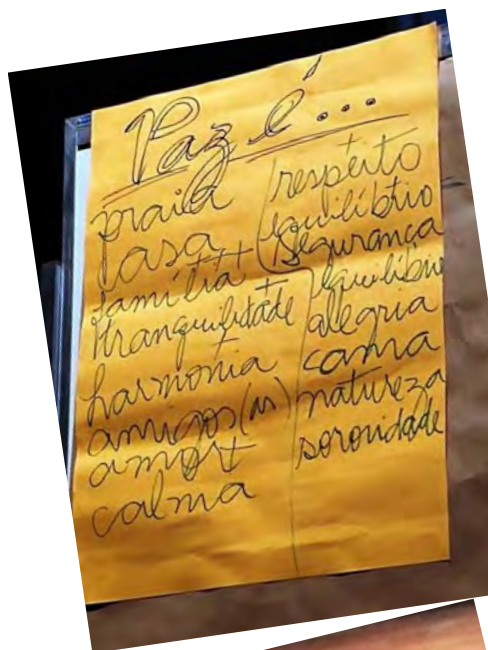 Paz é...
praia
casa
família ++
tranquilidade +
harmonia
amigos(as)
amor +
calma
respeito
equilíbrio
segurança
equilíbrio
alegria
cama
natureza
seronidade